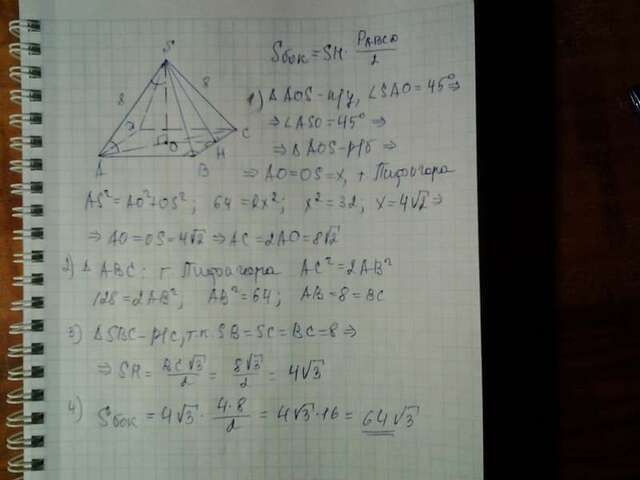 S
8
8
A
B
C
O
H
Sбок = SH · P_ABCD / 2
1) Δ AOS – п/у, ∠SAO = 45° ⇒
⇒ ∠ASO = 45° ⇒
⇒ Δ AOS – р/б ⇒
⇒ AO = OS = X, т Пифагора
AS² = AO² + OS²; 64 = 2x²; x² = 32, x = 4√2 ⇒
⇒ AO = OS = 4√2 ⇒ AC = 2AO = 8√2
2) Δ ABC: т. Пифагора AC² = 2AB²
128 = 2AB², AB² = 64; AB = 8 = BC
3) Δ SBC – р/с, т.к. SB = SC = BC = 8 ⇒
⇒ SH = BC√3 / 2 = 8√3 / 2 = 4√3
4) Sбок = 4√3 · 4·8 / 2 = 4√3 · 16 = 64√3